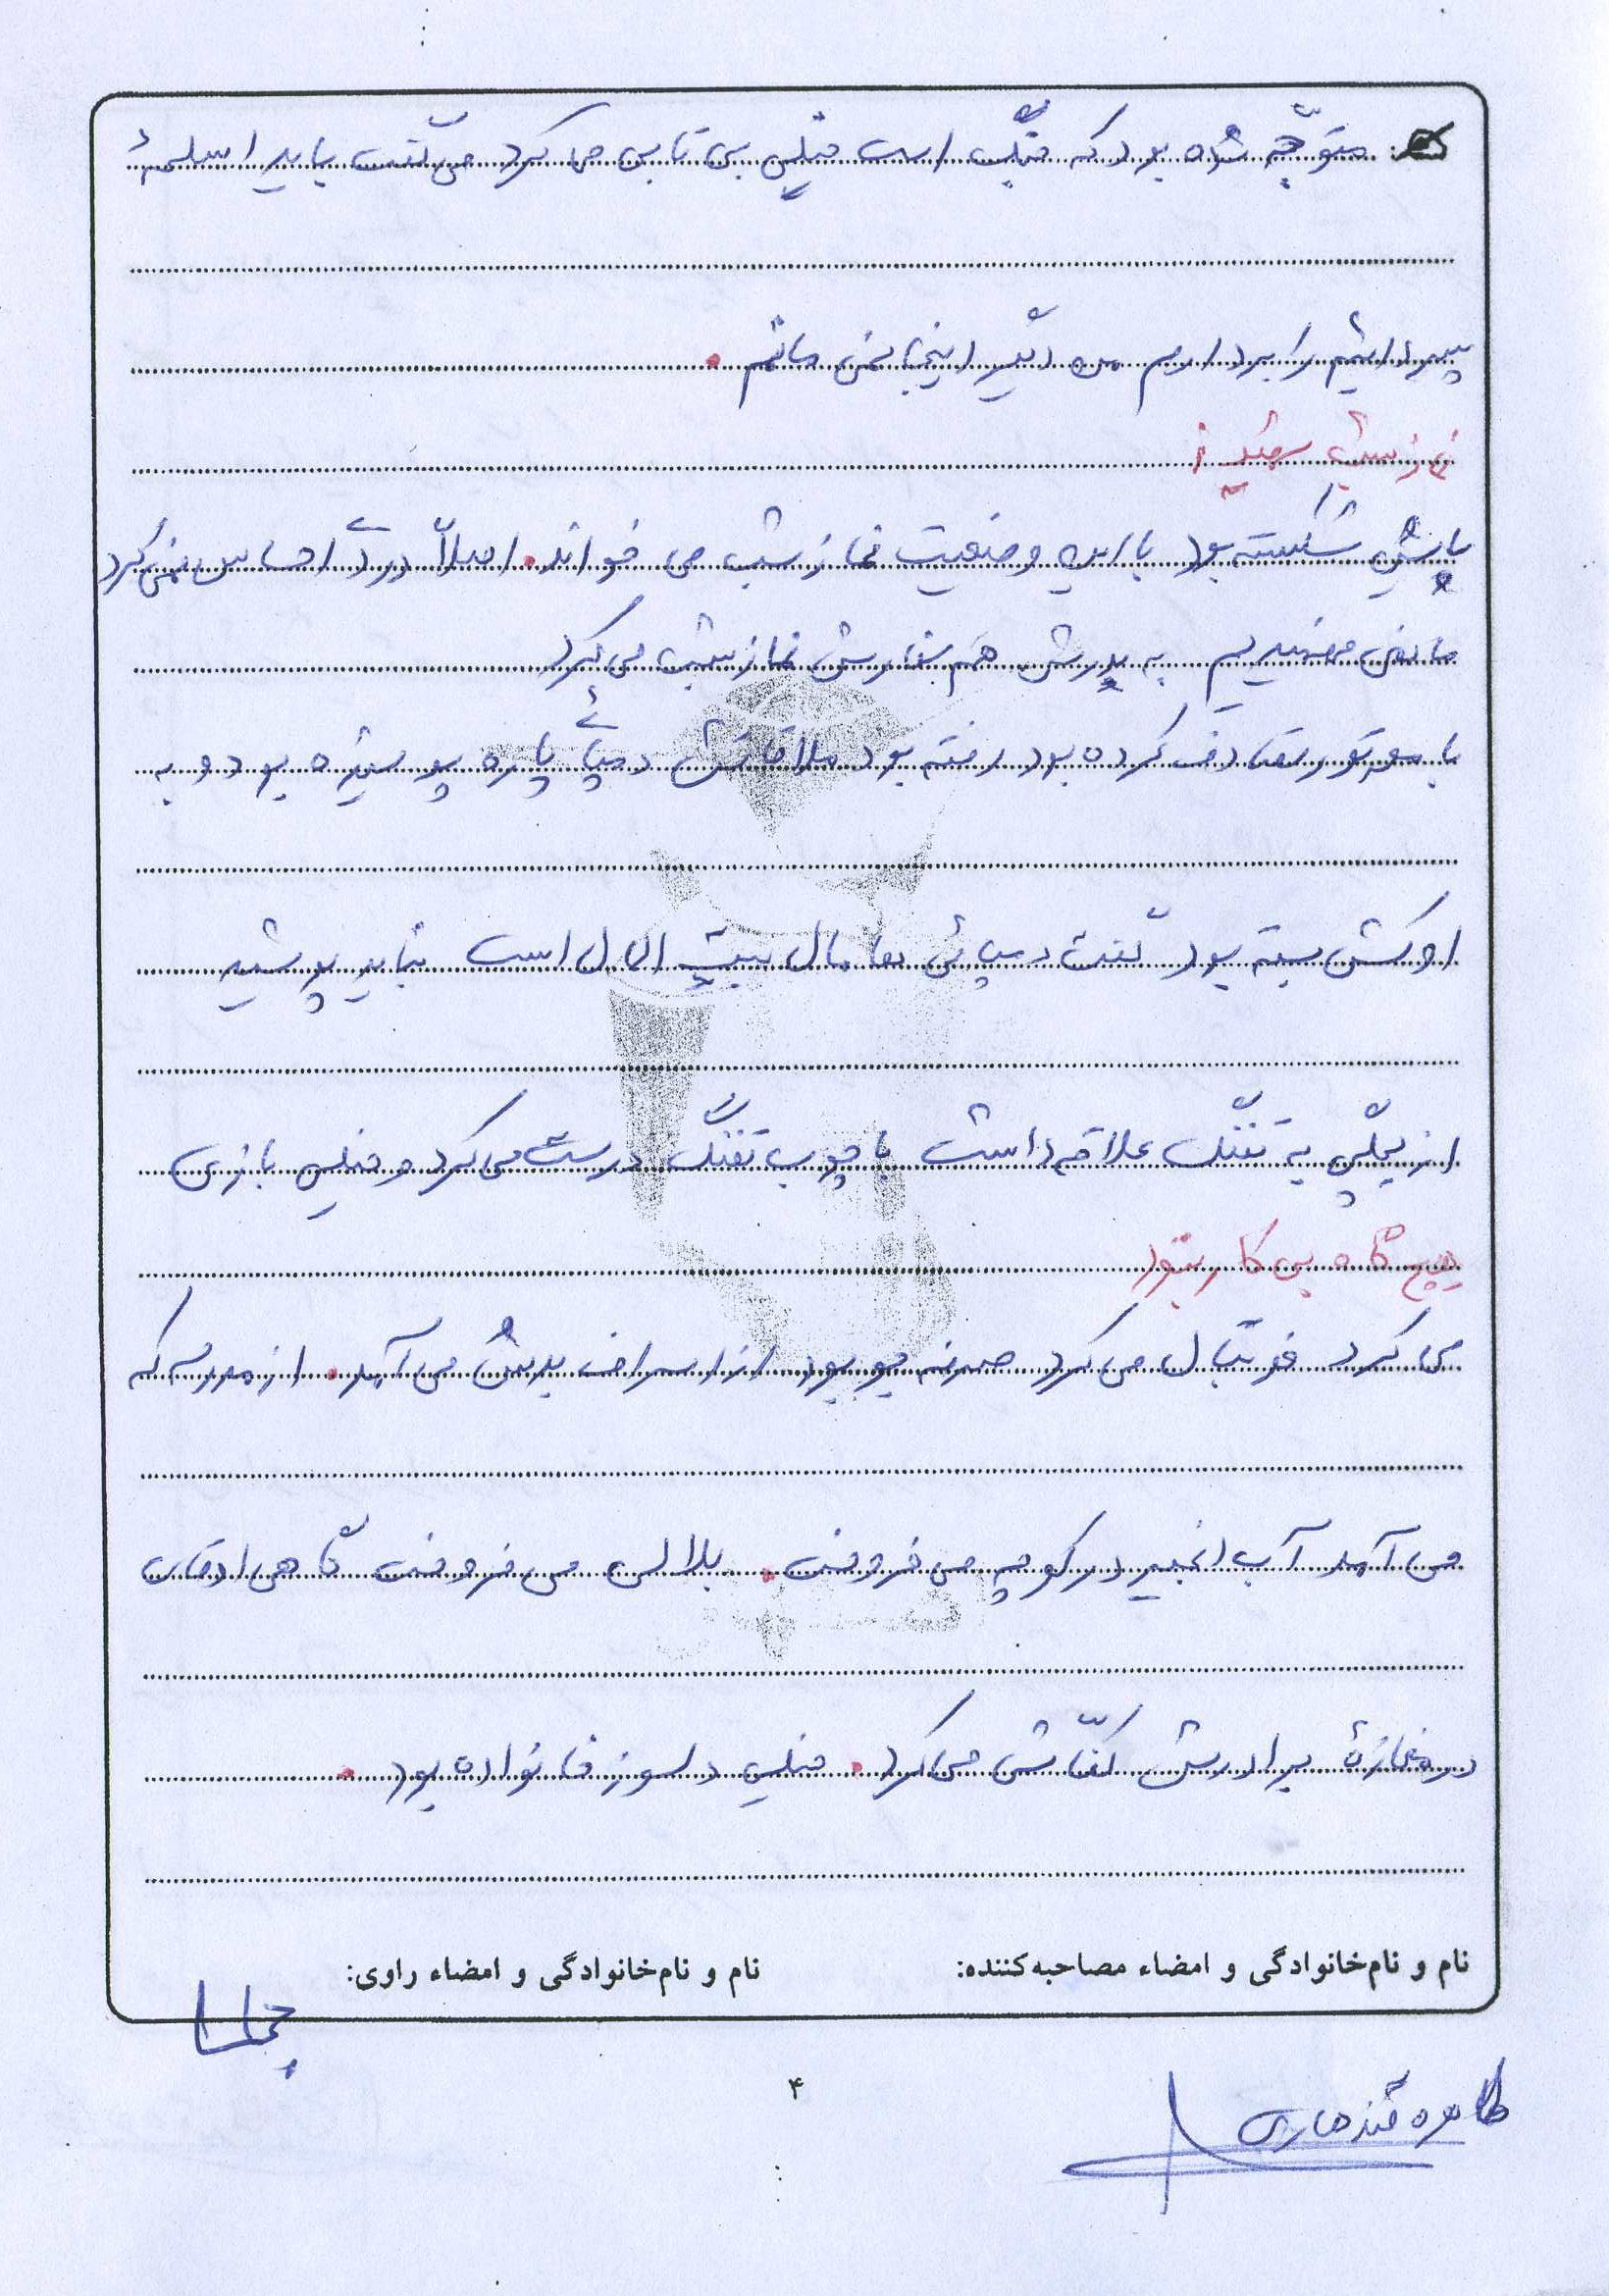 متوجّه شده بود که جنگ است خیلی بی تابی می کرد می گفت باید اسلحهٔ
پسردائیم را بردارم من دیگر اینجا نمی مانم.
نماز شب شهید:
پایش شکسته بود با این وضعیت نماز شب می خواند. اصلاً دردی احساس نمی کرد
ما نمی فهمیدیم به پدرش هم سفارش نماز شب می کرد
با موتور تصادف کرده بود رفته بود ملاقاتش دمپائی پاره پوشیده بود و به
او کش بسته بود گفت دمپائی ها مال بیت المال است نباید پوشید
از بچگی به تفنگ علاقه داشت با چوب تفنگ درست می کرد و خیلی بازی
هیچ گاه بی کار نبود
می کرد فوتبال می کرد صرفه جو بود از اسراف بدش می آمد. از مدرسه که
می آمد آب انجیر در کوچه می فروخت. بلالی می فروخت گاهی اوقات
در مغازهٔ برادرش کفّاشی می کرد. خیلی دلسوز خانواده بود.
نام و نام‌خانوادگی و امضاء مصاحبه‌کننده: نام و نام‌خانوادگی و امضاء راوی:
۴
طاهره قندهاری